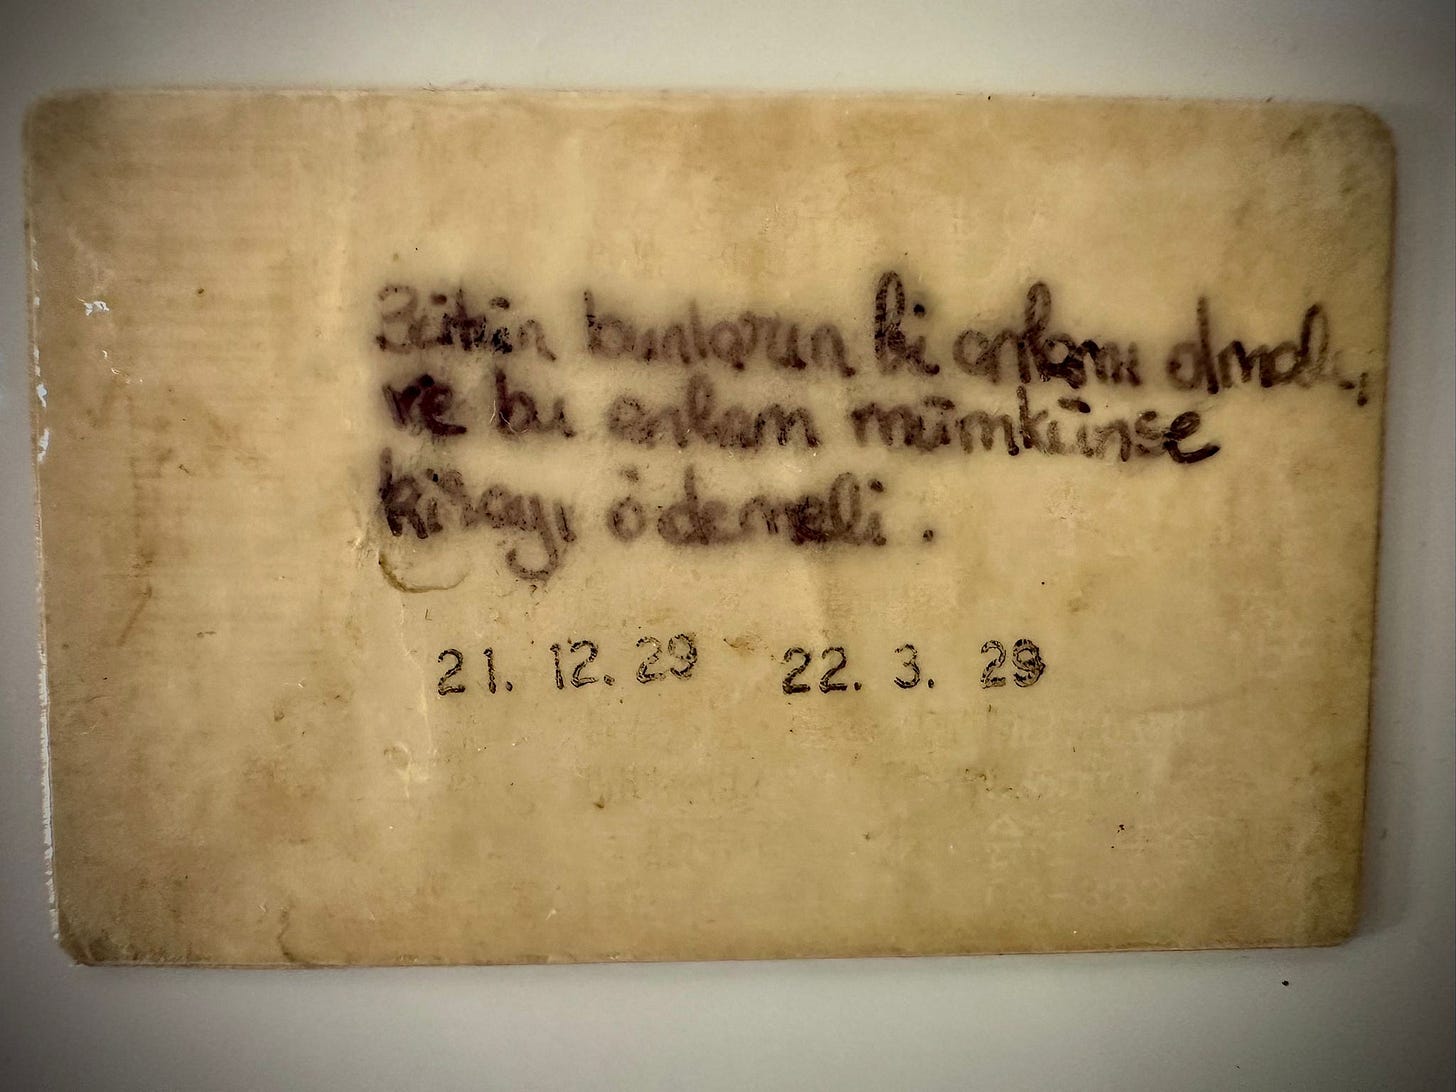 Bütün bunların bi anlamı olmalı,
ve bu anlam mümkünse
kirayı ödemeli.
21. 12. 29 22. 3. 29